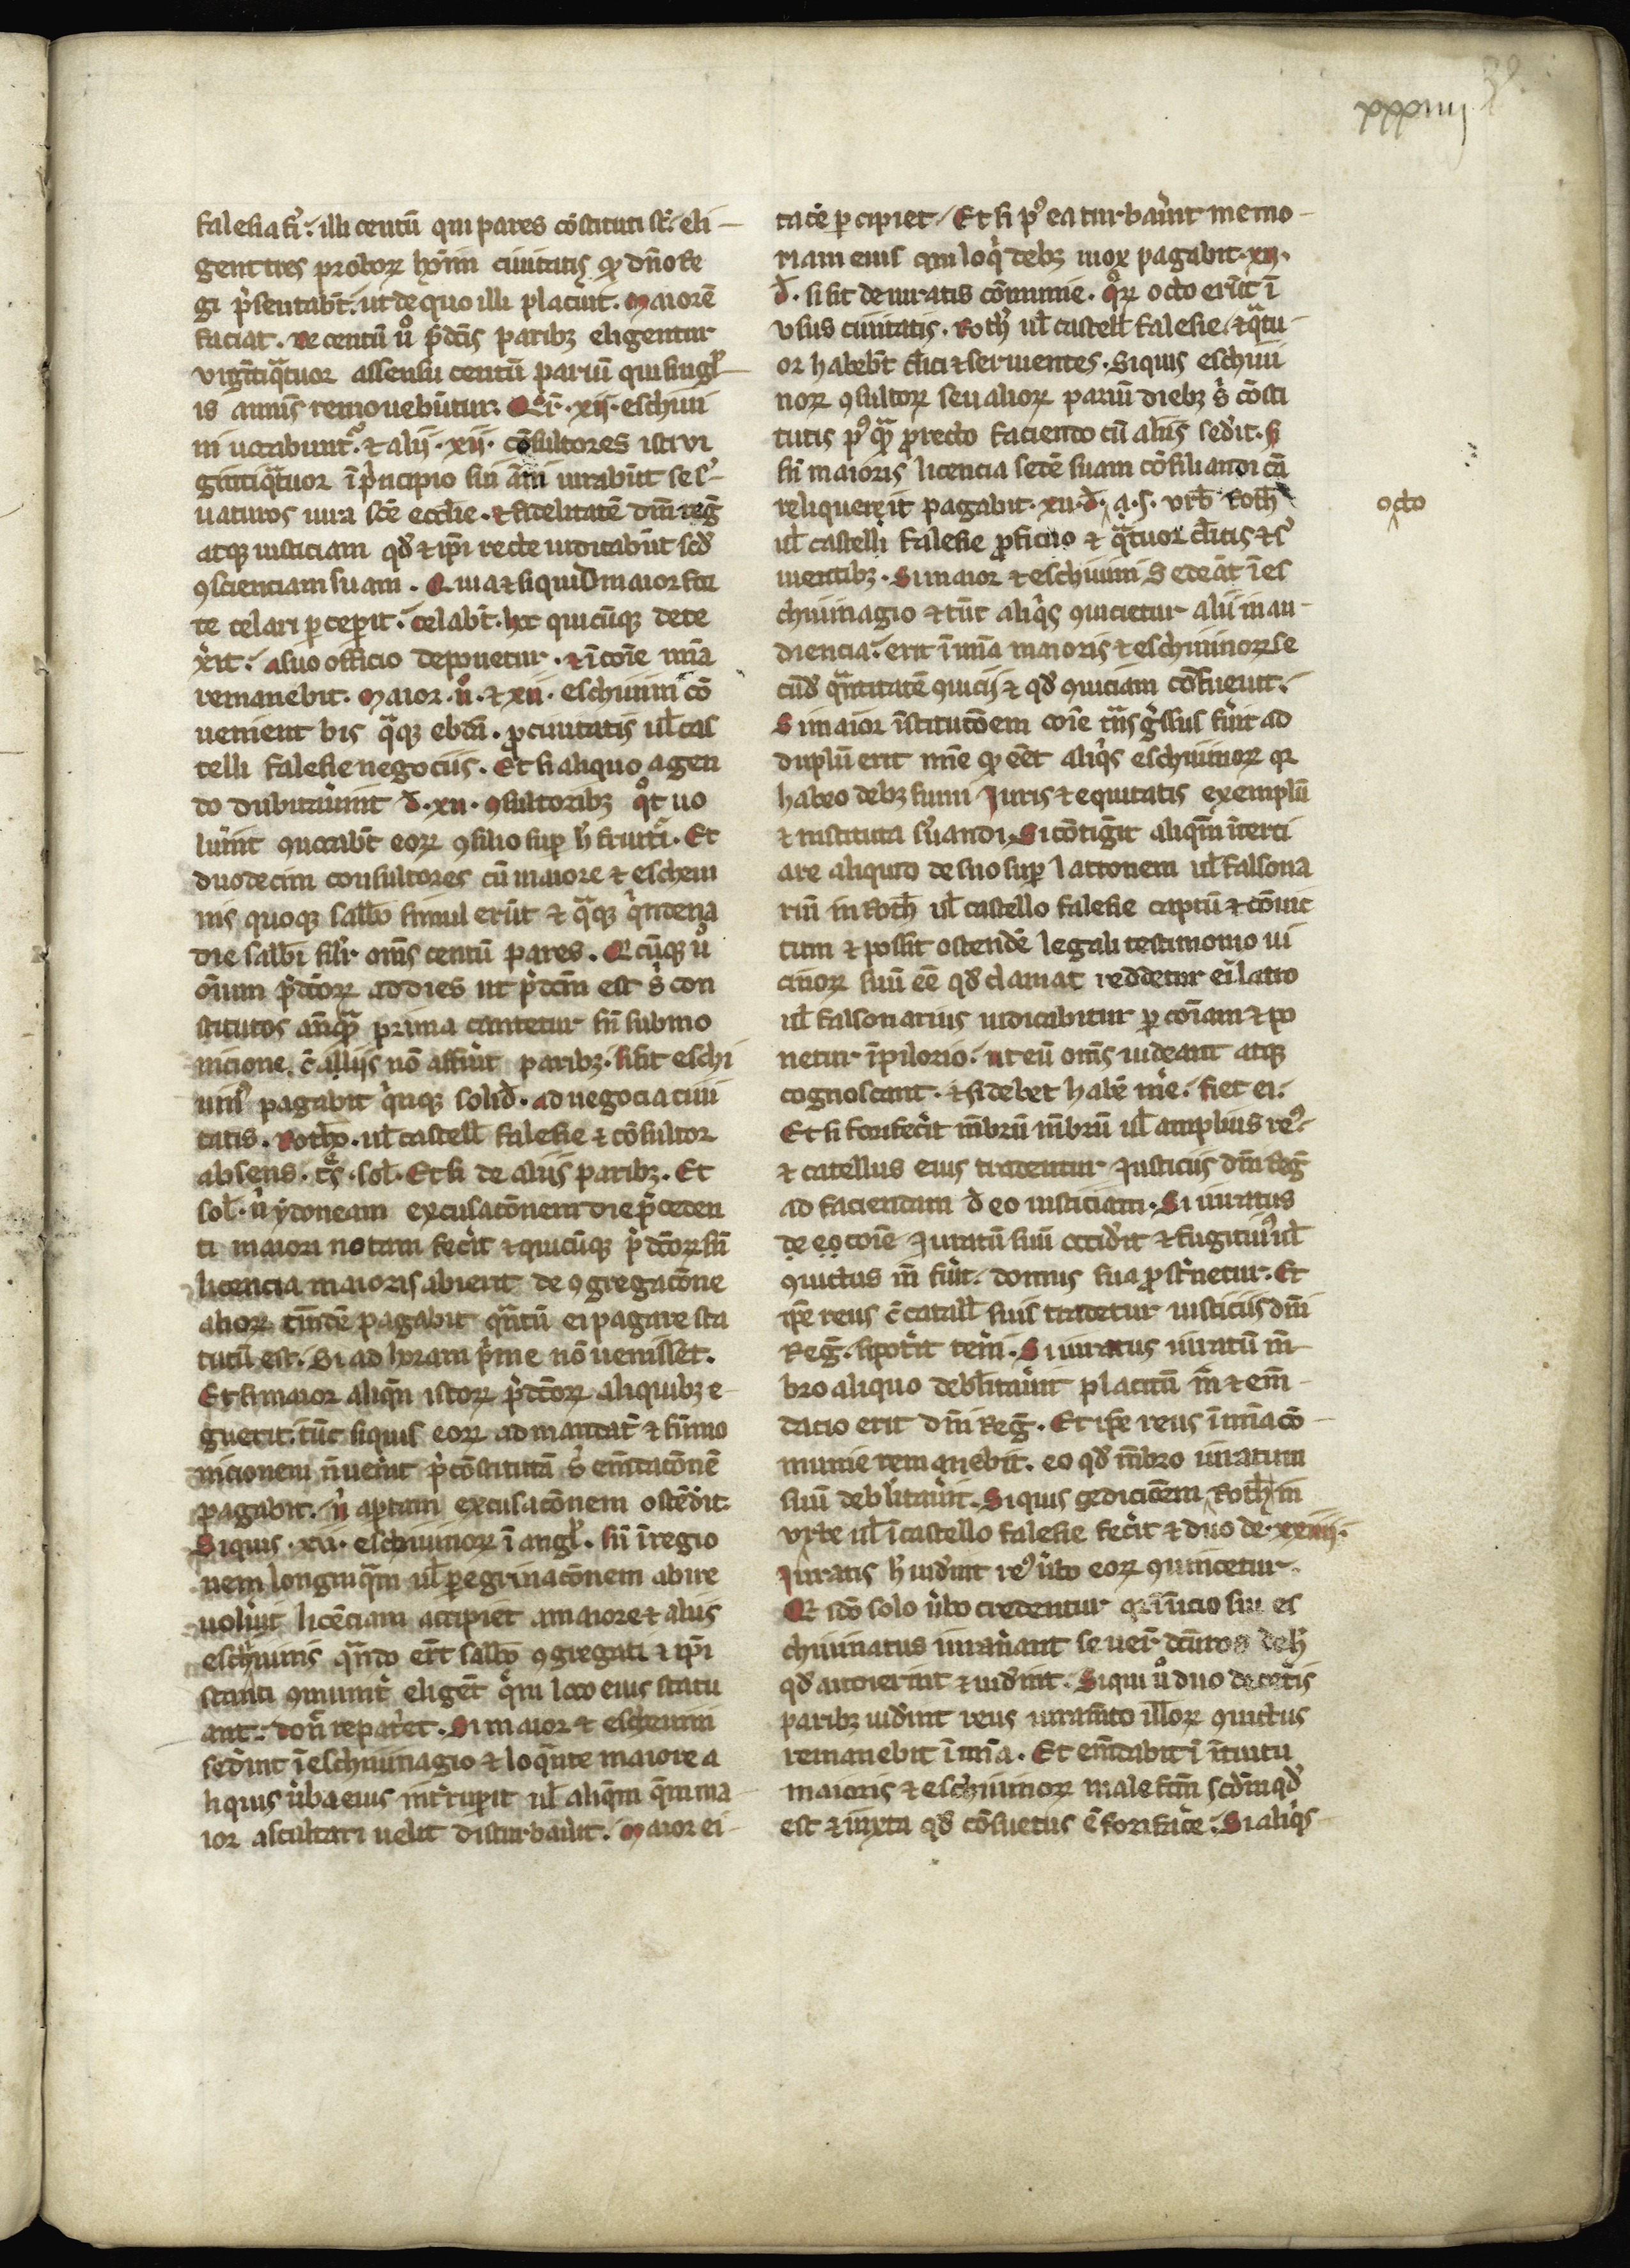 xxxiiij
falesia sit. illi centū qui pares cōstituti st̄. eli-
gent tres proborꝝ hoīm ciuitatis ꝙ dn̄o Re
gi p̄sentabt̄. ut de quo illi placuit. Maiorē
faciat. De centū ů p̄dcīs paribꝫ eligentur
viginti qͣtuor assensu centū pariū qui singul̓
is annis remouebūtur. Qͦrͬ. xij. eschiui
ni uocabunt᷑. ⁊ alij. xij. cōsultores isti vi
ginti qͣtuor ī p̓ncipio sui āni iurabūt se s̓-
uaturos iura scē eccl̄ie. ⁊ fidelitatē dn̄i reḡ
atqꝫ iusticiam qd̓ ⁊ ip̄i recte iudicabūt scd̓
ꝯscienciam suam. Quia ⁊ siquid maior for
te celari ꝑceperit. celabt̄. hoc quicūqꝫ dete
x̓it. a suo officio deponetur. ⁊ ī coīe mīa
remanebit. Maior. ů. ⁊ xii. eschiuini cō
uenient bis qͣqꝫ ebdā. ꝓ ciuitatis ul̄ cas
telli falesie negociis. Et si aliquo agen
do dubitauīnt d̓. xii. ꝯsultoribꝫ qͦt uo
lūint uocabt̄ eorꝝ ꝯsilio suꝑ h̓ fruitͥ. Et
duodecim consultores cū maiore ⁊ escheui
nis quoqꝫ sabb̄o simul erūt ⁊ qͣqꝫ q̓ndena
die sabbī sil̄r om̄s centū pares. Q̄cūqꝫ ů
oīum p̄dcōrꝝ ad dies ut p̄dcm̄ est s̓ con
stitutos anqͣ prima cantetur sn̄ submo
nicione. c̄ alijs nō affūit paribꝫ. si sit eschi
uin̓ pagabit q̓nqꝫ solid̓. ad negocia ciui
tatis. Rotho. ul̄ castell̄ falesie ⁊ cōsultor
absens. tͤs. sol̓. Et si de aliis paribꝫ. Et
sol̓. n̓ ydoneam excusacōnem die p̄ceden
ti maiori notam fec̓it ⁊ quicūqꝫ p̄dcōrꝝ sn̄
licencia maioris abierit de ꝯgregacōne
aliorꝝ tn̄dē pagabit qͣntū ei pagare sta
tutū est. Si ad horam p̄me nō uenisset.
Et si maior aliqn̄ istorꝝ p̄dcōrꝝ aliquibꝫ e-
guerit. tūc siquis eorꝝ ad mandat̄ ⁊ sūmo
nicionem n̄ uen̓it p̄cōstitutā s̓ emdacōnē
pagabit. n̓ aptam excusacōnem ostēdit.
Siquis. xii. eschiuinorꝝ ī angl̓. sn̄ ī regio
nem longinqͣm ul̄ ꝑegrinacōnem abire
uolūit licēciam accipiet a maiore ⁊ aliis
eschiuinis qͣndo ert̄ sabb̄o ꝯgregati ⁊ ip̄i
statī ꝯmunit̓ eligēt q̓m loco eius statu
ant. don̄ reparet. Si maior ⁊ escheuini
sed̓int ī eschiuinagio ⁊ loqͣnte maiore a
liquis ůba eius int̓ruꝑit ul̄ aliqͣm q̄m ma
ior ascultari uelit disturbauit. Maior ei-
tacē ꝑcipiet. Et si p̾ ea turbau̓int memo-
riam eius qui loq̓ debꝫ mox pagabit. xii.
d̓. si sit de iuratis cōmunie. qͦrꝝ octo erūt ī
vsus ciuitatis. Roth̓ ul̄ castell̄ falesie. ⁊ qͣtu-
or habebt̄ cl̄ici ⁊ seruientes. Siquis eschiui
norꝝ ꝯsultorꝝ seu aliorꝝ pariū diebꝫ s̓ cōsti
tutis p̾qͣ ꝓ recto faciendo cū aliis sed̓it. si
sn̄ maioris licencia sedē suam cōsiliandi cā
reliquerit pagabit. xii. d̓. a. s. vrb̄ Roth̓
octo
ul̄ castelli falesie ꝓficuo ⁊ qͣtuor cl̄icis ⁊ s̓
uientibꝫ. Si maior ⁊ eschiuini sedeāt ī es
chiuinagio ⁊ tūc aliq̓s ꝯuicietur aliī in au-
diencia. erit ī mīa maioris ⁊ eschiuinorꝝ se
cūd̓ qͣntitatē ꝯuicij ⁊ qd̓ ꝯuiciari cōsueuit.
Si maior īstitutōem coīe tn̄sg̓ssus fūit ad
duplū erit mīe ꝙ eēt aliq̓s eschiuinorꝝ qꝛ
habeo debꝫ sumi Iuris ⁊ equitatis exemplū
⁊ instituta s̓uandi. Si cōtig̓it aliqͣm īterti
are aliquid de suo suꝑ lattonem ul̄ falsona
riū in Roth̓ ul̄ castello falesie captū ⁊ cōuic
tum ⁊ possit ostendē legali testimonio ui
cinorꝝ suū eē qd̓ clamat reddetur ei. latro
ul̄ falsonarius iudicabitur ꝑ coīam ⁊ po
netur ī pilorio. ut eū om̄s uideant atqꝫ
cognoscant. ⁊ si debet habē mīe. fiet ei.
Et si forifec̓it mēbrū mēbrū ul̄ amplius re̾
⁊ catellus eius tradentur Justiciis dn̄i Reg̓
ad faciendam d̓ eo iusticiam. Si iuratus
de eo coīe Juratū suū occid̓it ⁊ fugitiu̾ ul̄
ꝯuictus īn fūit. domus sua ꝓst̓netur. Et
ip̄e reus c̄ catall̄ suis tradetur iusticiis dn̄i
Reg̓. si pot̓it ten̓i. Si iuratus iuratū mē
bro aliquo debl̓itau̓it placitū m̄ ⁊ em̄-
dacio erit dn̄i Reg̓. Et ip̄e reus ī mīa cō-
munie remanebit. eo qd̓ mēbro iuratum
suū debl̓itau̓it. Siquis sedicōem Roth̓ in
vrbe ul̄ ī castello falesie fec̓it ⁊ duo de. xxiiij.
Juratis h̓ uid̓int re̾ ůbo eorꝝ ꝯuincetur.
Qꝛ idō solo ůbo credentur qꝛ ī īicio sui es
chiuinatus iurau̓ant se uer̄ dcūros deh̓
qd̓ audierint ⁊ uid̓int. Siqui ů duo de cet̓is
paribꝫ uid̓int reus iuramto illorꝝ ꝯuictus
remanebit ī mīa. Et em̄dabit ī ītuitu
maioris ⁊ eschiuinorꝝ malefcm̄ scd̓m qd̓
est ⁊ iuxta qd̓ cōsuetus ē forifacē. Si aliq̓s